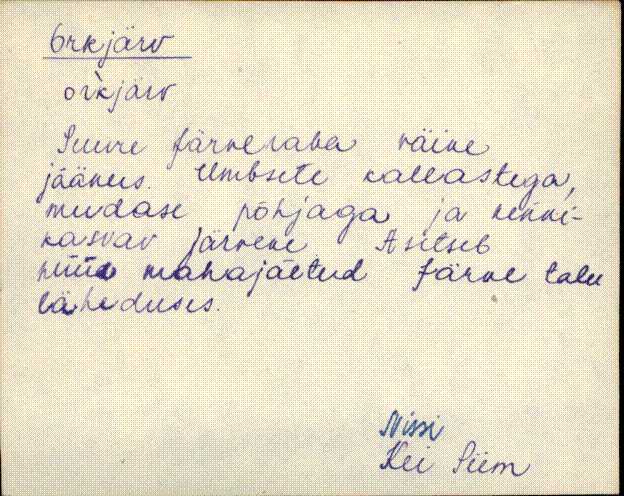 Orkjärv
or̀kjärv
Suure Järveraba väike
jäänus. Umbsete kallastega,
mudase põhjaga ja kinni-
kasvav järveke Asetseb
nüüd mahajäetud Järve talu
läheduses.
Nissi
Kei Siim